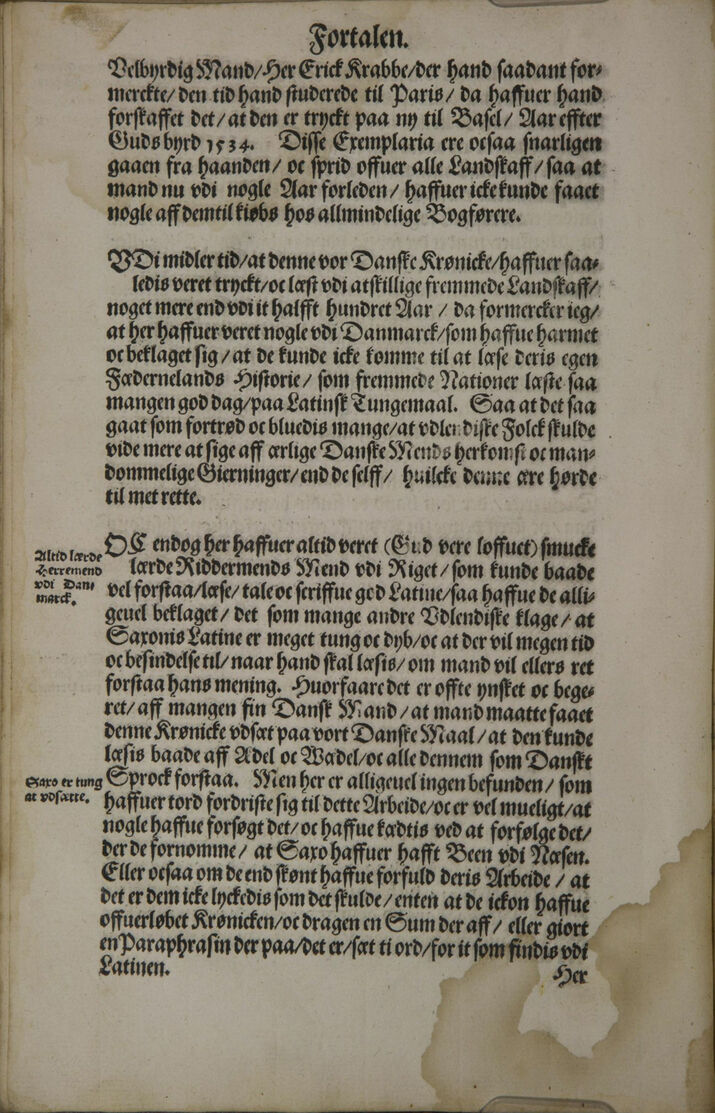 Fortalen.
Velbyrdig Mand/Her Erick Krabbe/der hand saadant for-
merckte/den tid hand studerede til Paris/ da haffuer hand
forskaffet det/at den er tryckt paa ny til Basel/ Aar effter
Guds byrd 1534. Disse Exemplaria ere ocsaa snarligen
gaaen fra haanden/ oc sprid offuer alle Landskaff/ saa at
mand nu vdi nogle Aar forleden/ haffuer icke kunde faaet
nogle aff dem til kiøbs hos allmindelige Bogførere.
VDi midler tid/at denne vor Danske Krønicke/haffuer saa-
ledis veret tryckt/oc læst vdi atskillige fremmede Landskaff/
noget mere end vdi it halfft hundret Aar / da formercker ieg/
at her haffuer veret nogle vdi Danmarck/som haffue harmet
oc beklaget sig/ at de kunde icke komme til at læse deris egen
Fædernelands Historie/ som fremmede Nationer læste saa
mangen god dag/paa Latinsk Tungemaal. Saa at det saa
gaat som fortrød oc bluedis mange/at vdlendiske Folck skulde
vide mere at sige aff ærlige Danske Mends herkomst oc man-
dommelige Gierninger/end de selff/ huilcke denne ære hørde
til met rette.
Altid lærde
Herremend
vdi Dan-
marck.
OC endog her haffuer altid veret (Gud vere loffuet) smucke
lærde Riddermends Mend vdi Riget/ som kunde baade
vel forstaa/læse/ tale oc scriffue god Latine/saa haffue de alli-
geuel beklaget/ det som mange andre Vdlendiske klage/ at
Saxonis Latine er meget tung oc dyb/oc at der vil megen tid
oc besindelse til/ naar hand skal læsis/ om mand vil ellers ret
forstaa hans mening. Huorfaare det er offte ynsket oc bege-
ret/ aff mangen fin Dansk Mand / at mand maatte faaet
denne Krønicke vdsæt paa vort Danske Maal/ at den kunde
læsis baade aff Adel oc Wadel/oc alle dennem som Danskt
Saxo er tung
at vdsætte.
Sprock forstaa. Men her er alligeuel ingen befunden/ som
haffuer tord fordriste sig til dette Arbeide/oc er vel mueligt/at
nogle haffue forsøgt det/ oc haffue kædtis ved at forfølge det/
der de fornomme/ at Saxo haffuer hafft Been vdi Næsen.
Eller ocsaa om de end skønt haffue forfuld deris Arbeide / at
det er dem icke lyckedis som det skulde/ enten at de ickon haffue
offuerløbet Krønicken/oc dragen en Sum der aff/ eller giort
en Paraphrasin der paa/det er/sæt ti ord/for it som findis vdi
Latinen.
Her